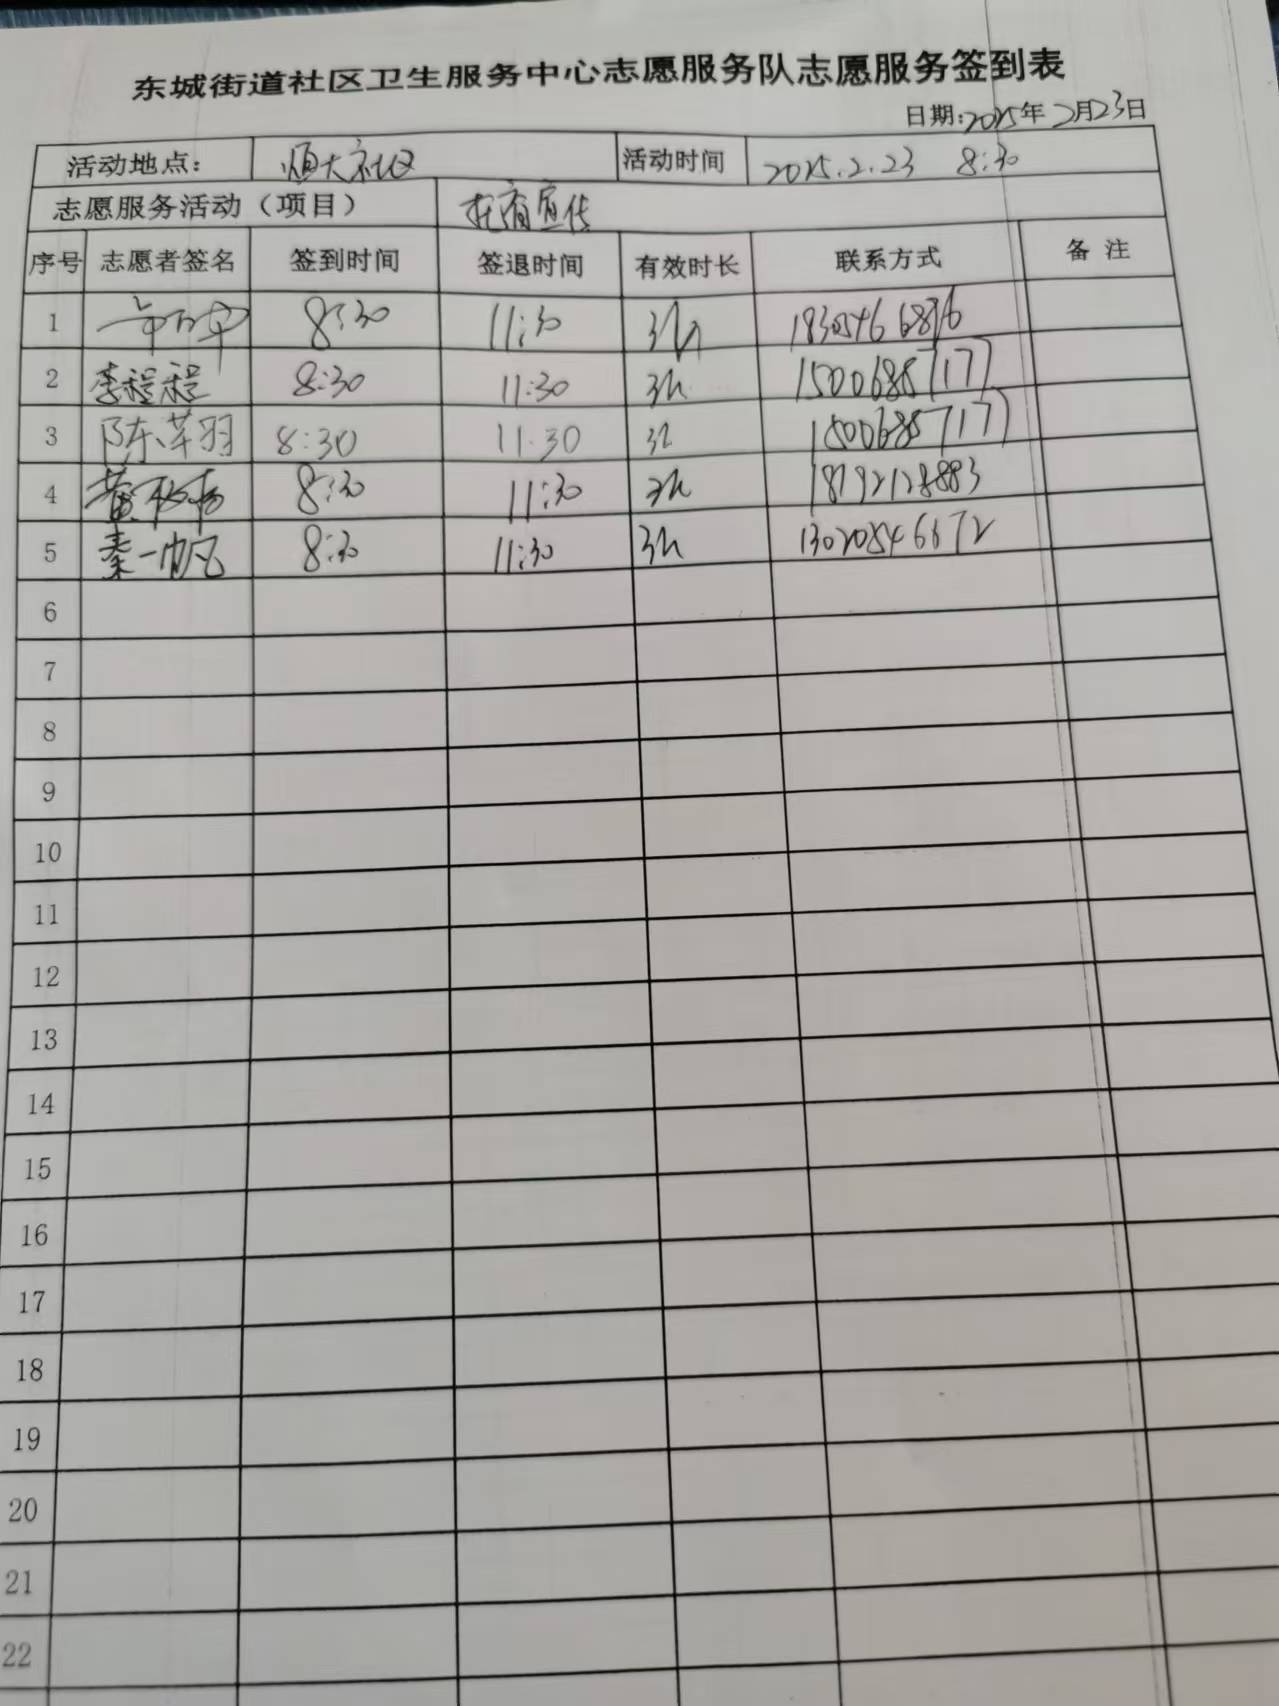 东城街道社区卫生服务中心志愿服务队志愿服务签到表
日期:2025年2月23日
活动地点: 大社区 活动时间 2025.2.23 8:30
志愿服务活动（项目） 托育宣传
序号 志愿者签名 签到时间 签退时间 有效时长 联系方式 备 注
1 8:30 11:30 3h 18305466876
2 李程程 8:30 11:30 3h 15006857177
3 陈芊羽 8:30 11:30 3h 15006857177
4 黄 8:30 11:30 3h 18192128883
5 秦一帆 8:30 11:30 3h 13020546672
6
7
8
9
10
11
12
13
14
15
16
17
18
19
20
21
22